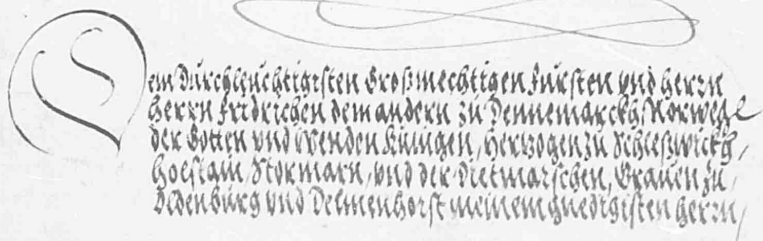 Dem Durchleuchtigisten Großmechtigen Fursten vnd Herrn
Herrn Fridrichen dem andern zu Dennemarckh, Norwege
der Gotten vnd Wenden Künigen, Hertzogen zu Schleßwickh,
Holstain, Stormarn, vnd der Dietmarschen, Grauen zu
Oldenburg vnd Delmenhorst meinem gnedigisten Herrn,